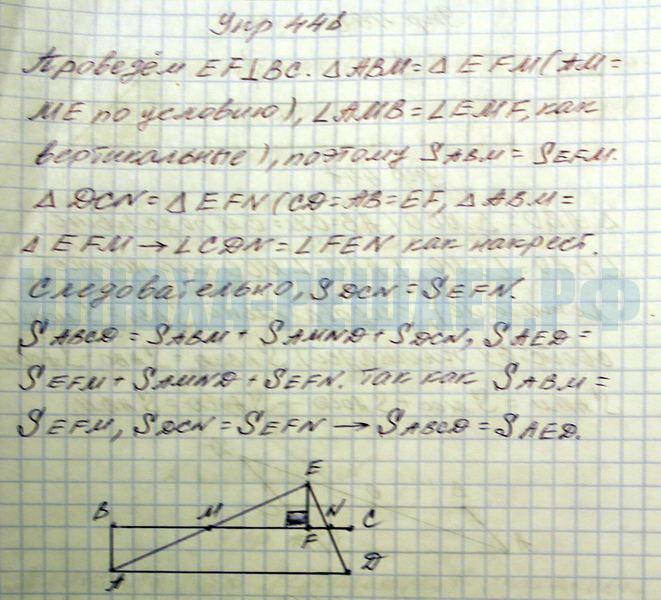 Упр 448
Проведём EF⊥BC. △ABM=△EFM(AM=
ME по условию), ∠AMB=∠EMF, как
вертикальные), поэтому SABM=SEFM.
△DCN=△EFN(CD=AB=EF, △ABM=
△EFM→∠CDN=∠FEN как накрест.
Следовательно, SDCN=SEFN.
SABCD=SABM+SAMND+SDCN, SAED=
SEFM+SAMND+SEFN. Так как SABM=
SEFM, SDCN=SEFN→SABCD=SAED.
E
B M N C
F
A D